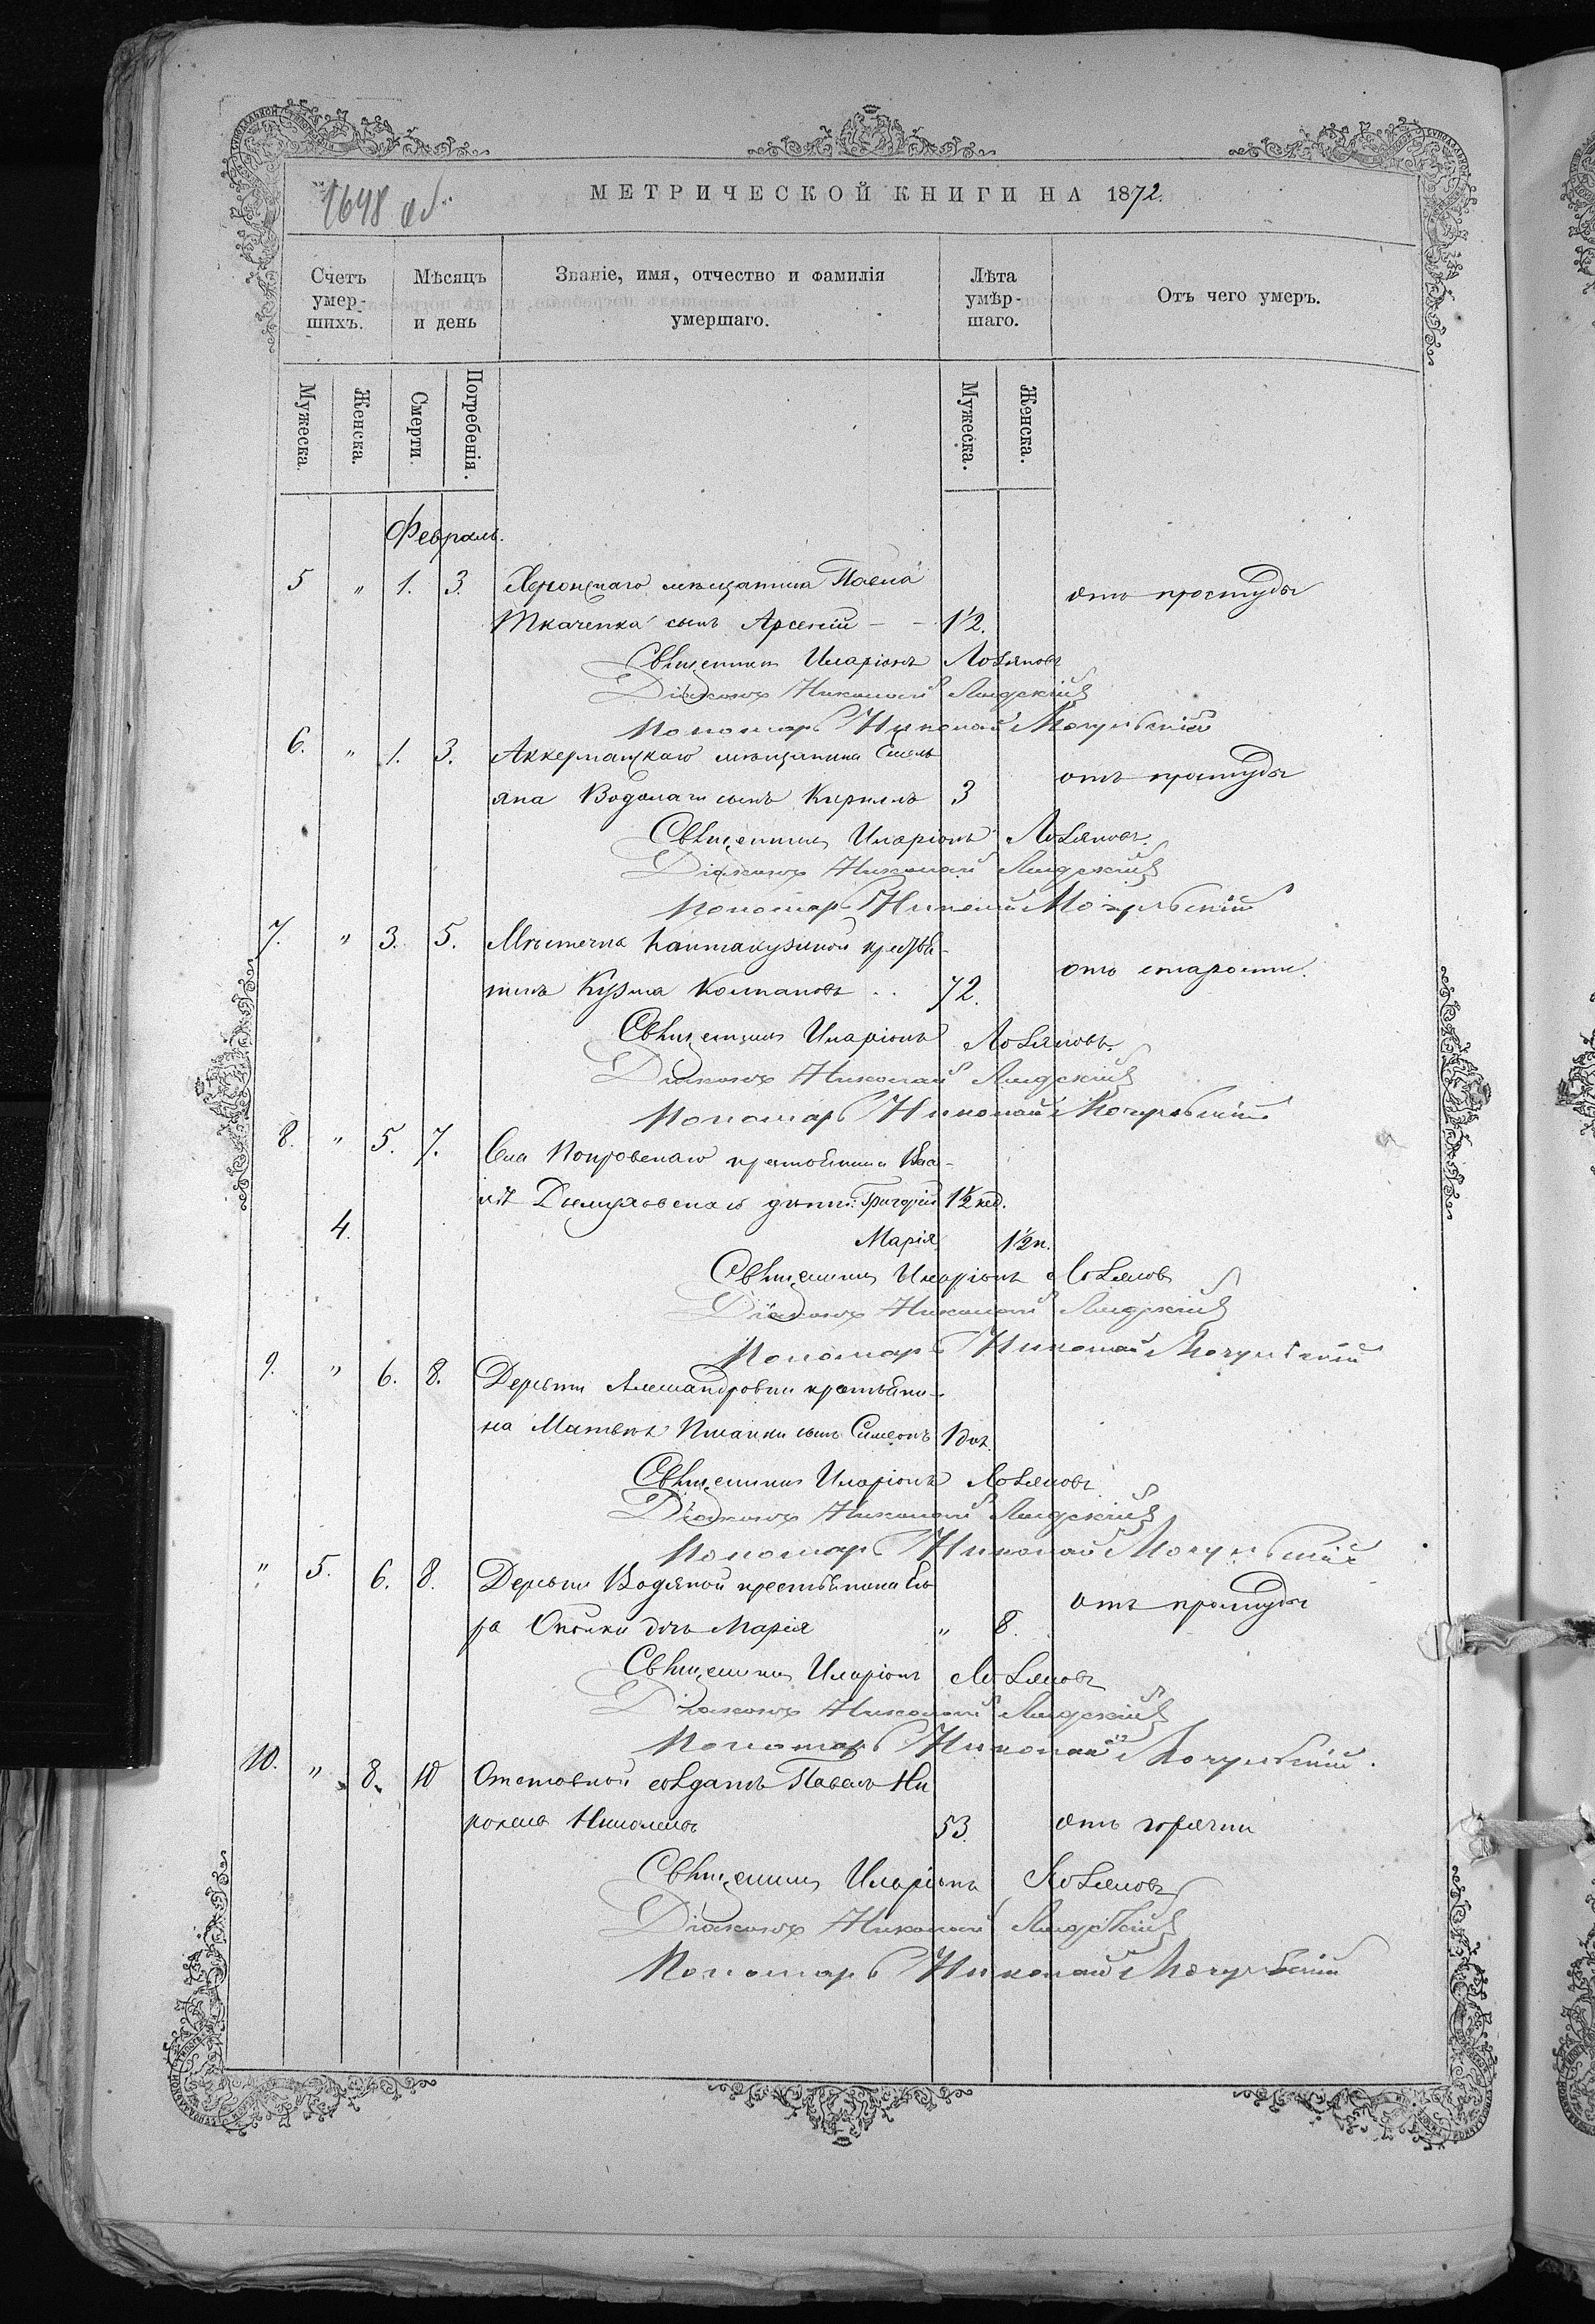 1648 об.
МЕТРИЧЕСКОЙ КНИГИ НА 1872.
Счетъ умер-шихъ.
Мѣсяцъ и день
Званіе, имя, отчество и фамилія умершаго.
Лѣта умѣр-шаго.
Отъ чего умеръ.
Мужеска.
Женска.
Смерти.
Погребенія.
Мужеска.
Женска.
Февраль.
5 " 1. 3. Херсонскаго мѣщанина Павла отъ простуды
Ткаченка сынъ Арсеній - - 1½.
Священникъ Иларіонъ Лобановъ
Діаконъ Николай Лидскій
Пономарь Николай Мочульскій
6. " 1. 3. Аккерманскаго мѣщанина Емель
яна Водолаги сынъ Кириллъ 3 отъ простуды
Священникъ Иларіонъ Лобановъ.
Діаконъ Николай Лидскій
Пономарь Николай Мочульскій
7. " 3. 5. Мѣстечка Кантакузинки крестья-
нинъ Кузма Колпаковъ .. 72. отъ старости.
Священникъ Иларіонъ Лобановъ.
Діаконъ Николай Лидскій
Пономарь Николай Мочульскій
8. " 5. 7. Села Покровскаго крестьянина
дѣти: Григорій 1½ нед.
4. Марія 1½ н.
Священникъ Иларіонъ Лобановъ
Діаконъ Николай Лидскій
Пономарь Николай Мочульскій
9. " 6. 8. Деревни Александровки крестьяни-
на Матвѣя сынъ Симеонъ 1
Священникъ Иларіонъ Лобановъ
Діаконъ Николай Лидскій
Пономарь Николай Мочульскій
" 5. 6. 8. Деревни Водяной крестьянина
дочь Марія " 8. отъ простуды
Священникъ Иларіонъ Лобановъ
Діаконъ Николай Лидскій
Пономарь Николай Мочульскій.
10. " 8. 10 Отставной солдатъ Павелъ
53. отъ горячки
Священникъ Иларіонъ Лобановъ
Діаконъ Николай Лидскій
Пономарь Николай Мочульскій